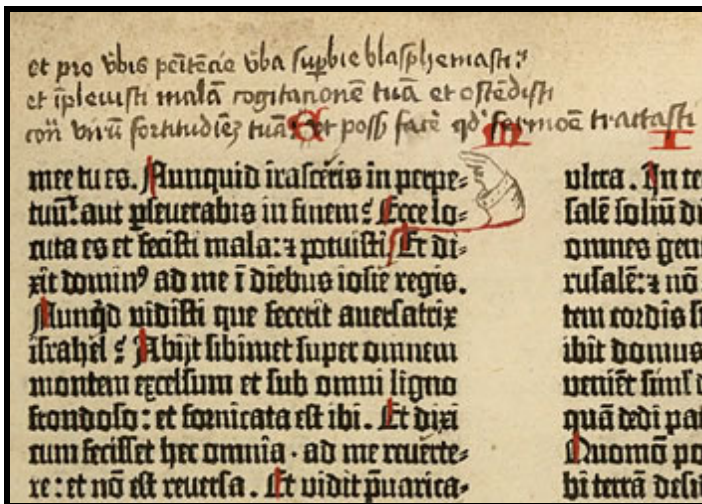 et pro v̄bis pēitēcie v̄ba sup̱bie blasphemasti :
et īplevisti malā cogitationē tuā et ostēdisti
con̄ virū fortitudiēꝫ tuā: et poss̄ facē qd' sermoē tractasti
mee tu es. Nunquid irasceris in perpe-
tuū: aut p̱seuerabis in finem? Ecce lo-
cuta es et fecisti mala: ⁊ potuisti. Et di-
xit dominꝰ ad me ī diebus iosie regis.
Nunqd vidisti que fecerit auersatrix
israhel? Abijt sibimet super omnem
montem excelsum et sub omni ligno
frondoso: et fornicata est ibi. Et dixi
cum fecisset hec omnia · ad me reuerte-
re: et nō est reuersa. Et vidit p̄uarica-
vltra. In te
salē soliū di
omnes gen
rusalē: ⁊ nō
tem cordis
ibit domus
veniēt siml'
quā dedi pat
Quomō po
bi terrā desi